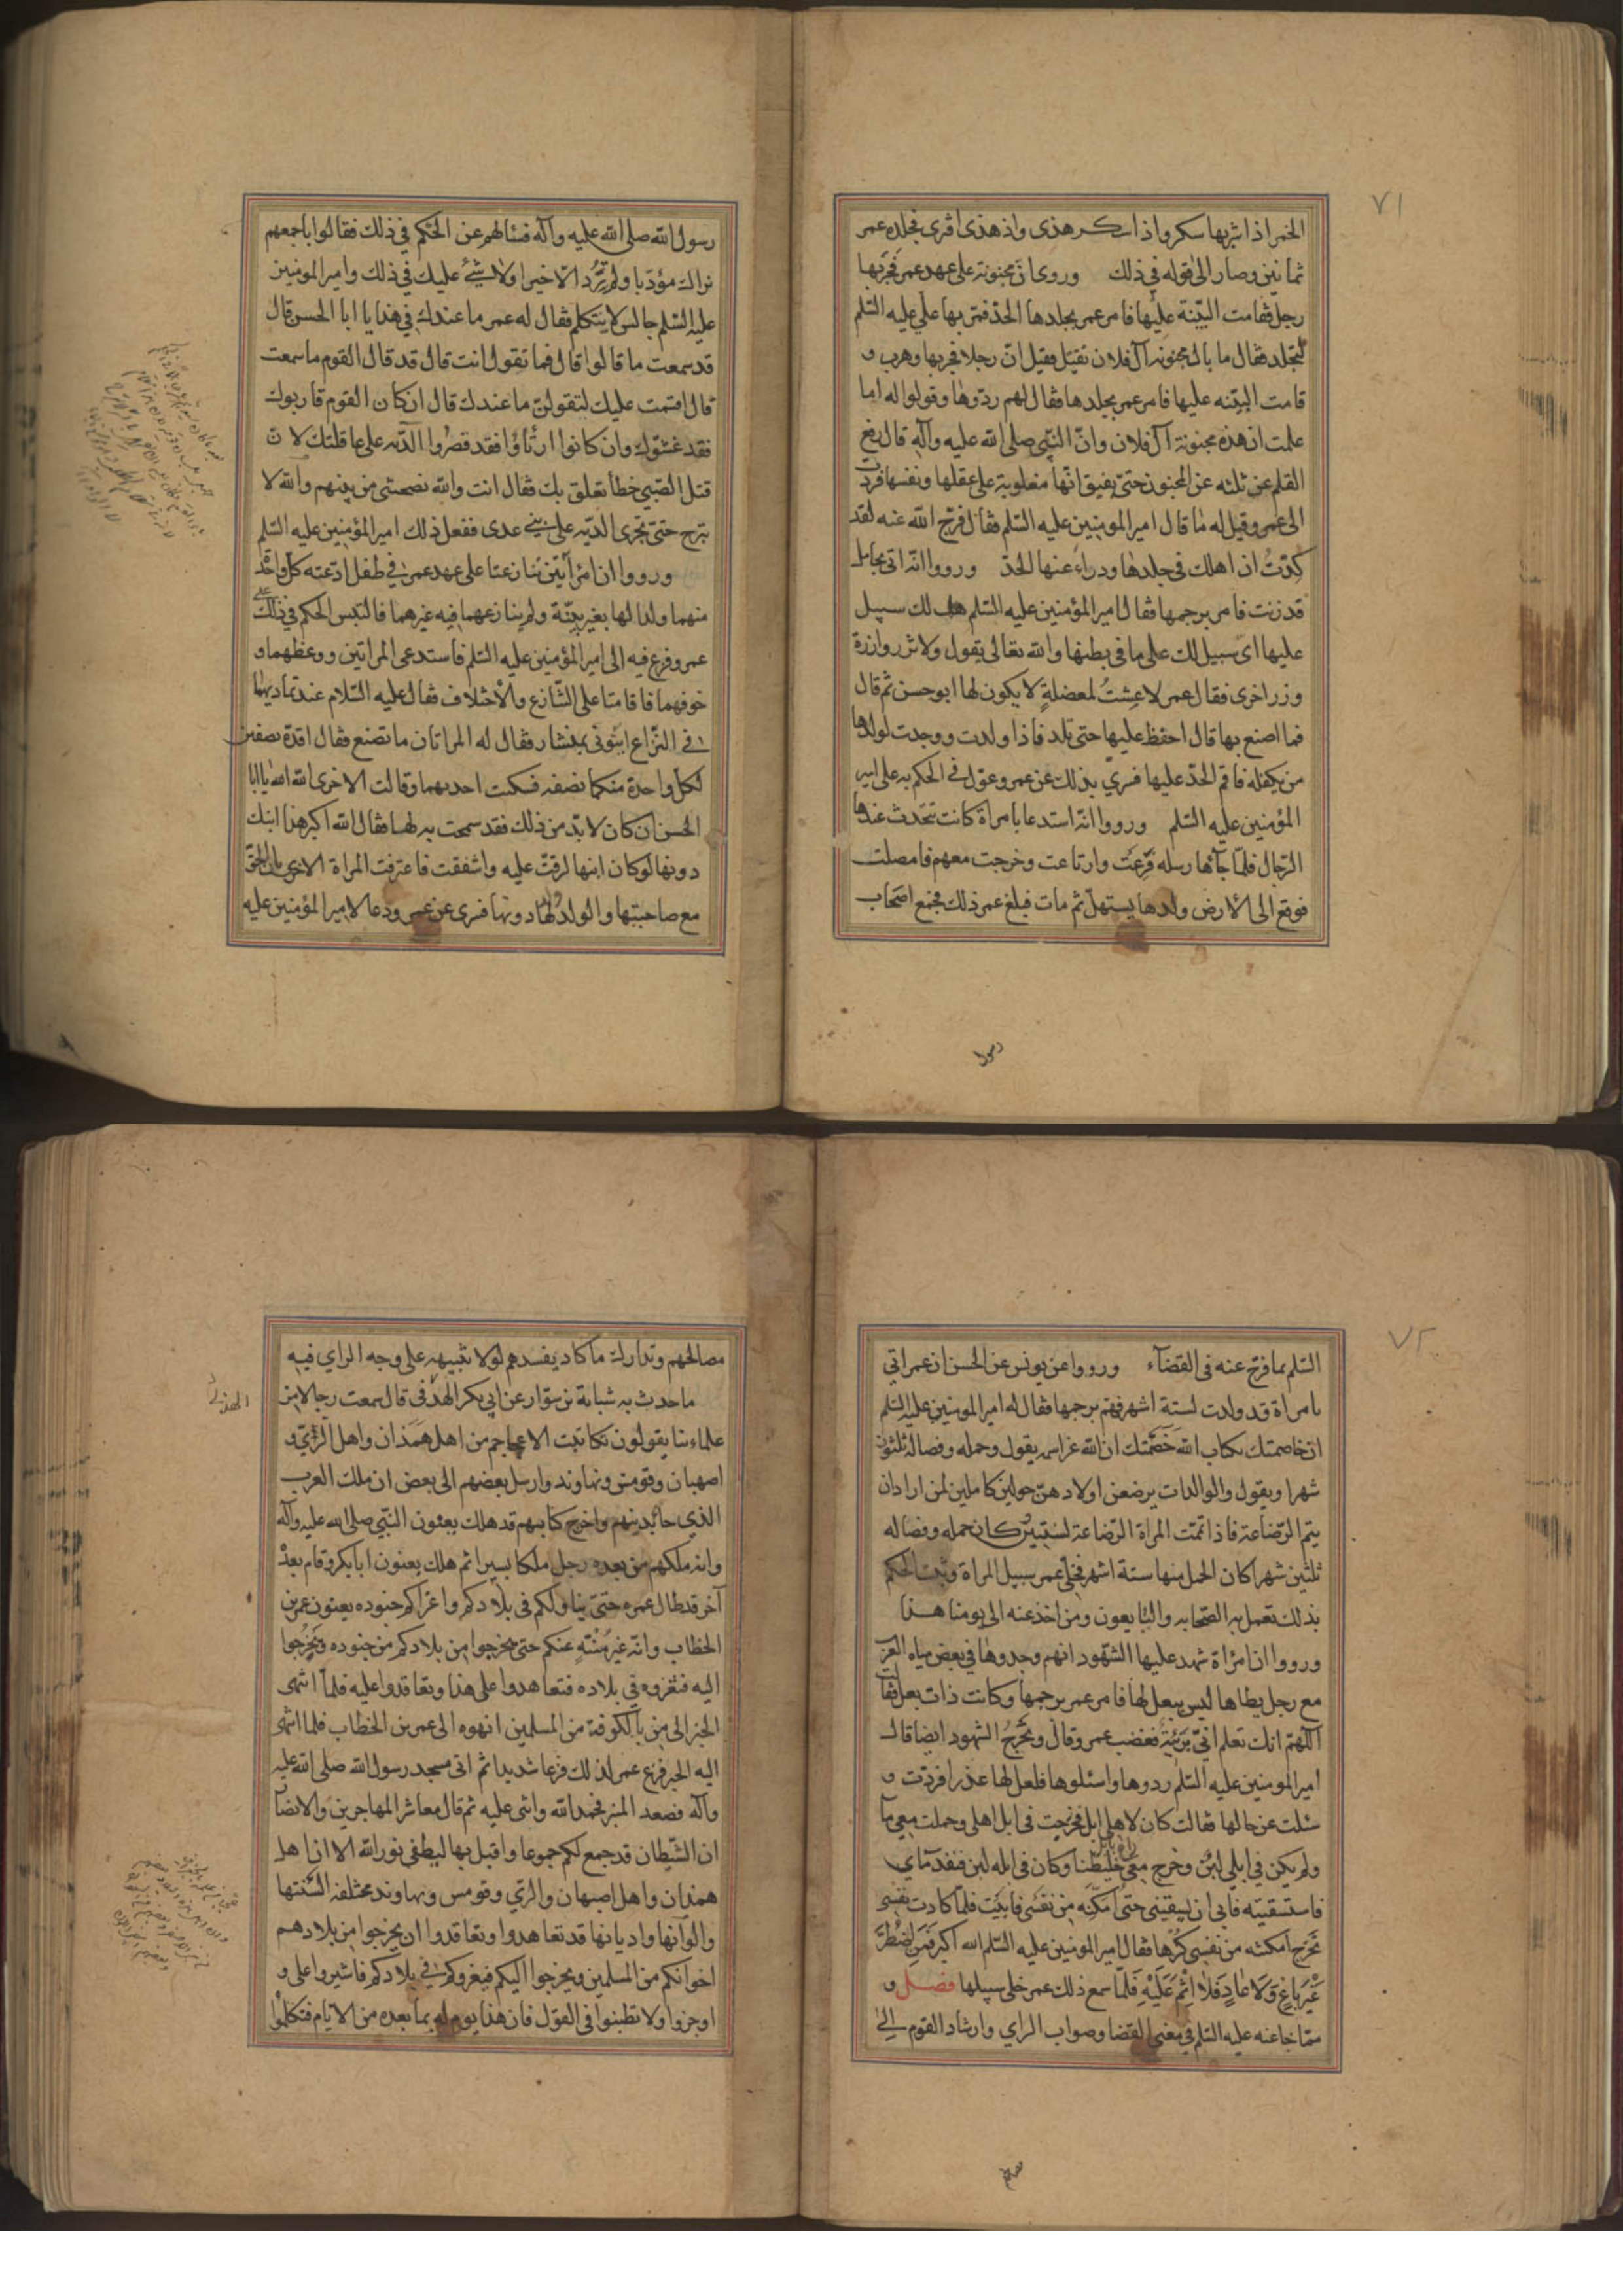 ٧١
الخمر اذا شربها سكر واذا سكر هذى واذا هذى افترى فجلده عمر
ثمانين وصار الى قوله في ذلك وروى ان مجنونة على عهد عمر فجربها
رجل فقامت البيّنة عليها فامر عمر بجلدها الحدّ فمرّ بها على عليه السّلم
لتجلد فقال ما بال مجنونة آل فلان تقتل فقيل انّ رجلا فجربها وهرب و
قامت البيّنه عليها فامر عمر بجلدها فقال لهم ردّوها وقولوا له اما
علمت ان هذه مجنونة آل فلان وانّ النّبي صلى الله عليه وآله قال رفع
القلم عن ثلثه عن المجنون حتى يفيق انّها مغلوبة على عقلها ونفسها فردّت
الى عمر وقيل له ما قال امير المومنين عليه السّلم فقال فرّج الله عنه لقد
كدّتُ ان اهلك في جلدها ودراء عنها الحدّ ورووا انّه اتى بحامل
قد زنت فامر برجمها فقال امير المؤمنين عليه السّلم هب لك سبيل
عليها اى سبيل لك على ما في بطنها والله تعالى يقول ولا تزر وازرة
وزر اخرى فقال عمر لا عشتُ لمعضلةٍ لا يكون لها ابو حسن ثم قال
فما اصنع بها قال احفظ عليها حتى تلد فاذا ولدت ووجدت لولدها
من يكفله فاقم الحدّ عليها فسرى بذلك عن عمر وعوّل في الحكم به على امير
المؤمنين عليه السّلم ورووا انّه استدعا بامراة كانت تتحدث عندها
الرّجال فلمّا جآءها رسله فزعت وارتاعت وخرجت معهم فاملصت
فوقع الى الارض ولدها يستهلّ ثم مات فبلغ عمر ذلك فجمع اصحاب
رسول
رسول الله صلى الله عليه وآله فسئالهم عن الحكم في ذلك فقالوا باجمعهم
نراك مؤدّبا ولم تُرِد الّا خيرا ولا شئ عليك في ذلك وامير المومنين
عليه السّلم جالس لا يتكلم فقال له عمر ما عندك في هذا يا ابا الحسن قال
قد سمعت ما قالوا قال فما تقول انت قال قد قال القوم ما سمعت
قال اقسمت عليك لتقولنّ ما عندك قال ان كان القوم قاربوك
فقد غشّوك وان كانوا ارتأوا فقد قصروا الدّيه على عاقلتك لانّ
قتل الصّبي خطأ تعلق بك فقال انت والله نصحتنى من بينهم والله لا
تبرح حتى تجرى الديّه على بني عدى ففعل ذلك امير المؤمنين عليه السّلم
ورووا ان امرأتين تنازعتا على عهد عمر في طفل ادّعته كل واحدة
منهما ولدا لها بغير بيّنة ولم ينازعهما فيه غيرهما فالتبس الحكم في ذلك على
عمر وفزع فيه الى امير المؤمنين عليه السّلم فاستدعى المراتين ووعظهما و
خوفهما فاقامتا على التّنازع والأختلاف فقال عليه السّلام عند تماديهما
في النّزاع ايتوني بمنشار فقال له المراتان ما تصنع فقال اقدّه نصفين
لكل واحدة منكما نصفه فسكتت احديهما وقالت الاخرى الله الله يا ابا
الحسن ان كان لا بدّ من ذلك فقد سمحت به لها فقال الله اكبر هذا ابنك
دونها لو كان ابنها لرقّت عليه واشفقت فاعترفت المراة الاخرى بان الحق
مع صاحبتها والولد لها دونها فسرى عن عمر ودعا لامير المؤمنين عليه
٧٢
السّلم بما فرّج عنه في القضآء ورووا عن يونس عن الحسن ان عمر اتي
بامراة قد ولدت لستة اشهر فهمّ برجمها فقال له امير المومنين عليه السّلم
ان خاصمتك بكتاب الله خَصَمتك ان الله عزّ اسمه يقول وحمله وفصاله ثلثون
شهرا ويقول والوالدات يرضعن اولادهنّ حولين كاملين لمن اراد ان
يتم الرّضاعة فاذا تمّمت المراة الرّضاعة لسنتين كان حمله وفصاله
ثلثين شهرا كان الحمل منها ستة اشهر فخلّى عمر سبيل المراة وثبت الحكم
بذلك تعمل به الصّحابه والتابعون ومن اخذ عنه الى يومنا هذا
ورووا ان امرأة شهد عليها الشّهود انهم وجدوها في بعض مياه العرب
مع رجل يطاها ليس ببعل لها فامر عمر برجمها وكانت ذات بعل فقالت
اللّهمّ انك تعلم انّي بَرئيةٌ فغضب عمر وقال وتجرّح الشّهود ايضا قال
امير المومنين عليه السّلم ردوها واسئلوها فلعل لها عذرا فردّت و
سئلت عن حالها فقالت كان لاهلي ابل فخرجت في ابل اهلي وحملت معي مآء
ولم يكن في ابلي لبنٌ وخرج معي خليطنا وكان في ابله لبن فنفد مآءي
فاستسقيته فابى ان يسقيني حتى امكّنه من نفسي فابيت فلمّا كادت نفسي
تخرج امكنته من نفسي كُرْها فقال امير المومنين عليه السّلم الله اكبر فَمَنِ اضْطُرَّ
غَيْرَ بَاغٍ وَلَا عَادٍ فَلَا اِثْمَ عَلَيْهِ فلمّا سمع ذلك عمر خلى سبيلها فصل و
ممّا جا عنه عليه السّلم في معنى القضا وصواب الراي وارشاد القوم الى
مصالح
مصالحهم وتدارك ما كاد يفسدهم لولا تنبيهه على وجه الراي فيه
ما حدث به شبابة بن سوّار عن ابي بكر الهذفى قال سمعت رجالا من
الهذلي
علماءنا يقولون تكاتبت الاعاجم من اهل هَمَذان واهل الرّي و
اصهبان وقومس ونهاوند وارسل بعضهم الى بعض ان ملك العرب
الذي جاء بدينهم واخرج كتابهم قد هلك يعنون النّبي صلى الله عليه وآله
وانه ملكهم من بعده رجل ملكا يسيرا ثم هلك يعنون ابا بكر وقام بعدهُ
آخر قد طال عمره حتى يناولكم في بلادكم واغزاكم جنوده يعنون عمر بن
الخطاب وانّه غير مُنْتَهٍ عنكم حتى تخرجوا من بلادكم من جنوده وتخرُجوا
اليه فتغزوه في بلاده فتعاهدوا على هذا وتعاقدوا عليه فلمّا انتهى
الخبر الى من بالكوفة من المسلمين انهوه الى عمر بن الخطاب فلما انتهى
اليه الخبر فزع عمر لذلك فزعا شديدا ثم اتى مسجد رسول الله صلى الله عليه
وآله فصعد المنبر فحمد الله واثنى عليه ثم قال معاشر المهاجرين والانصار
ان الشّيطان قد جمع لكم جموعا واقبل بها ليطفى نور الله الا ان اهل
همذان واهل اصبهان والرّي وقومس ونهاوند مختلفة السنتها
والوانها واديانها قد تعاهدوا وتعاقدوا ان يخرجوا من بلادهم
اخوانكم من المسلمين ويخرجوا اليكم فيغزوكم في بلادكم فاشيروا على و
اوجزوا ولا تطنبوا في القول فان هذا يوم له ما بعده من الايّام فتكلموا